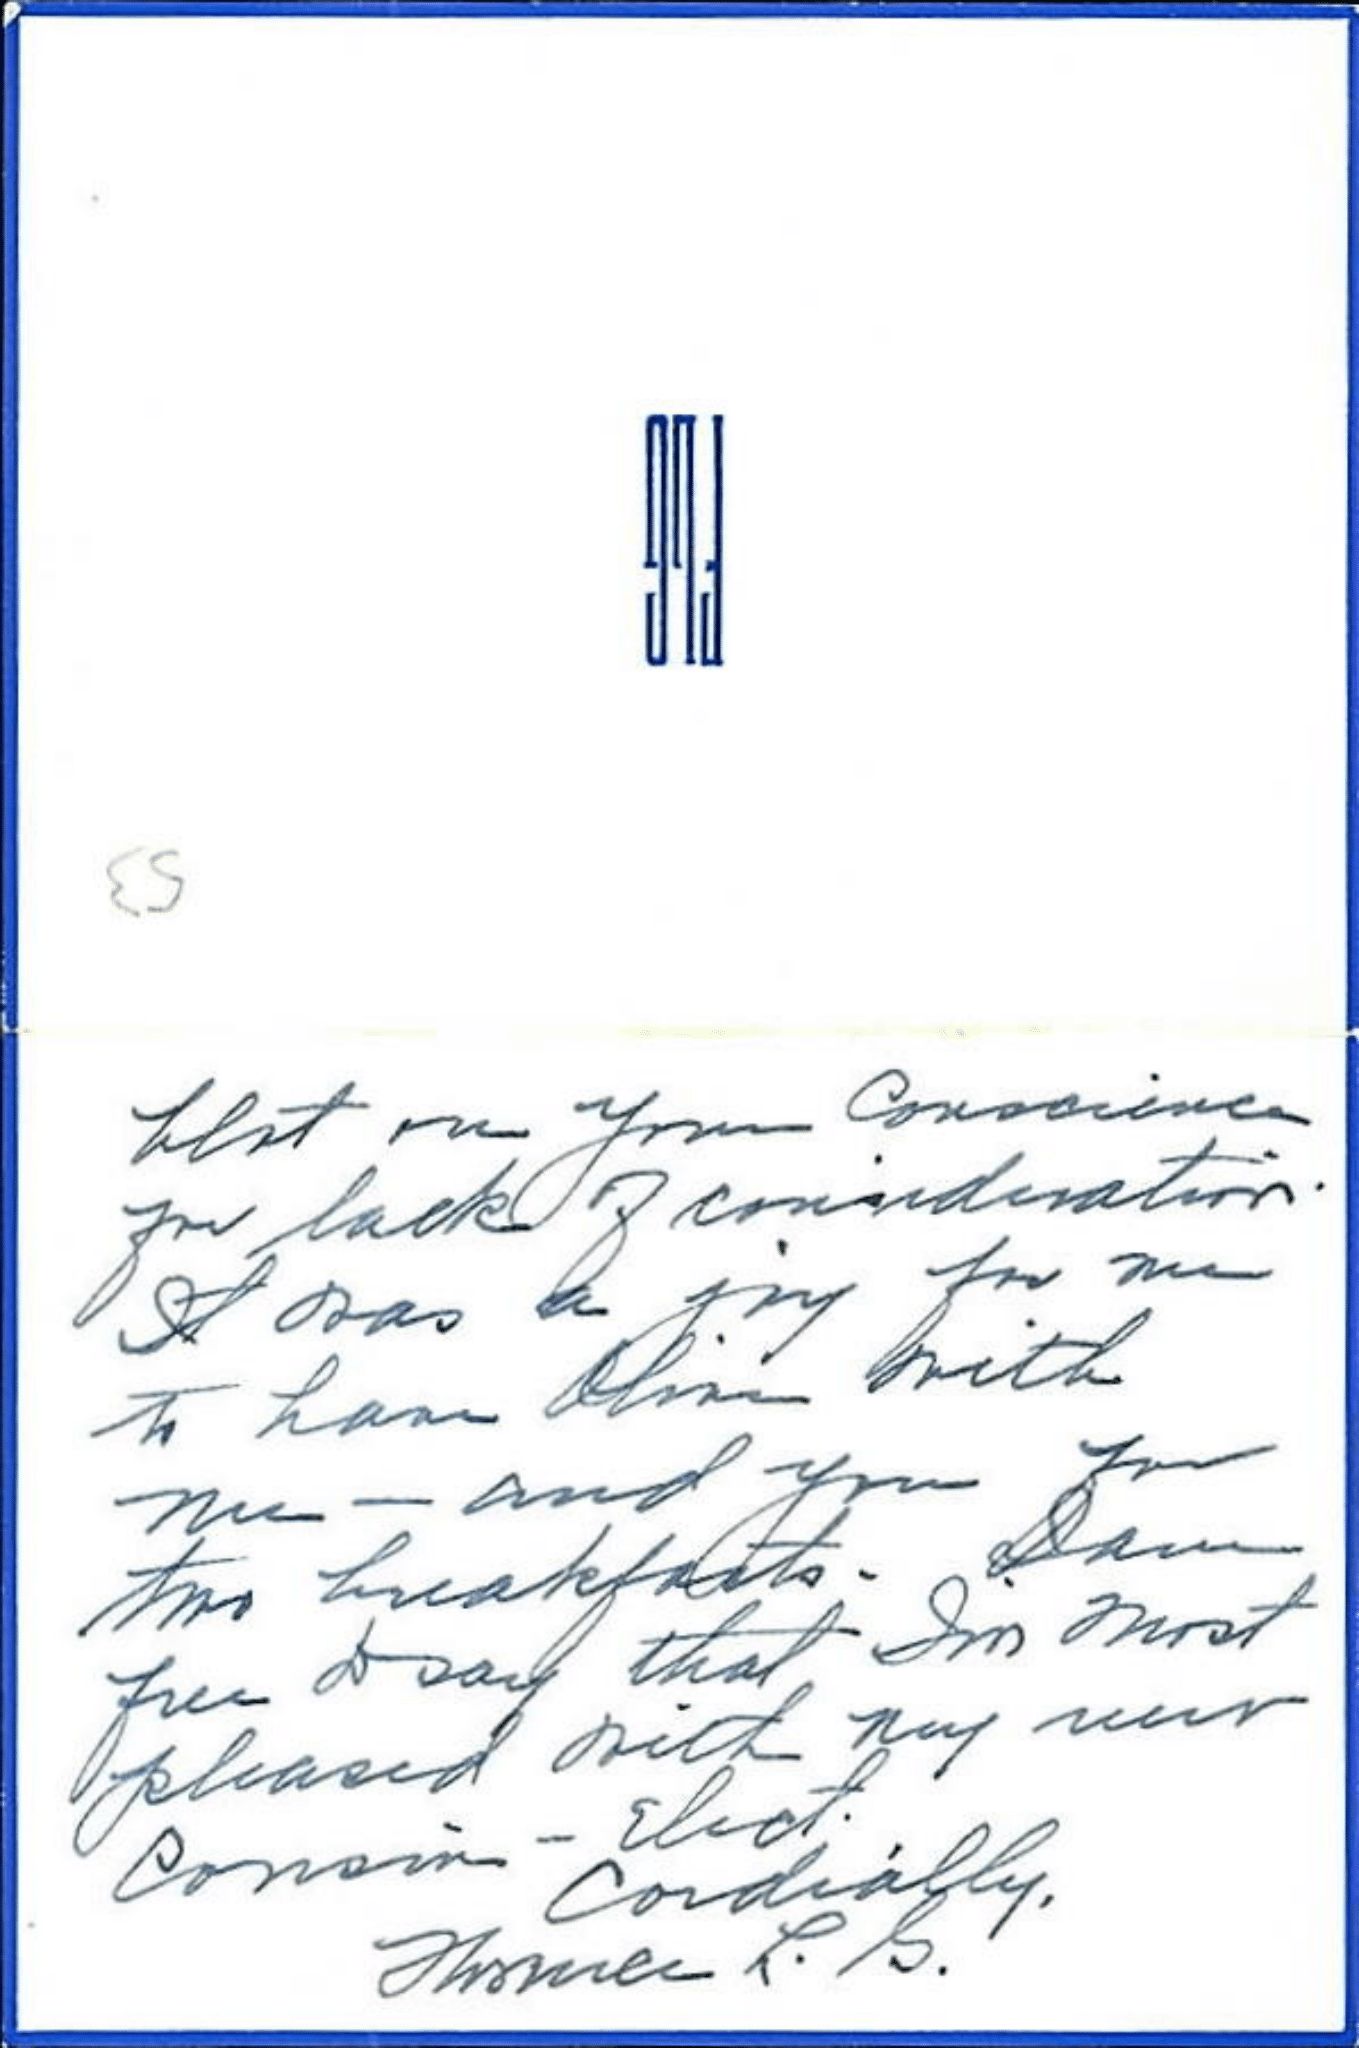 FLG
ES
blot on your Conscience
for lack of consideration.
It was a joy for me
to have Olivia with
me — and you for
two breakfasts. Dave
free to say that I'm most
pleased with my new
Cousin - Elect.
Cordially,
Florence L. G.